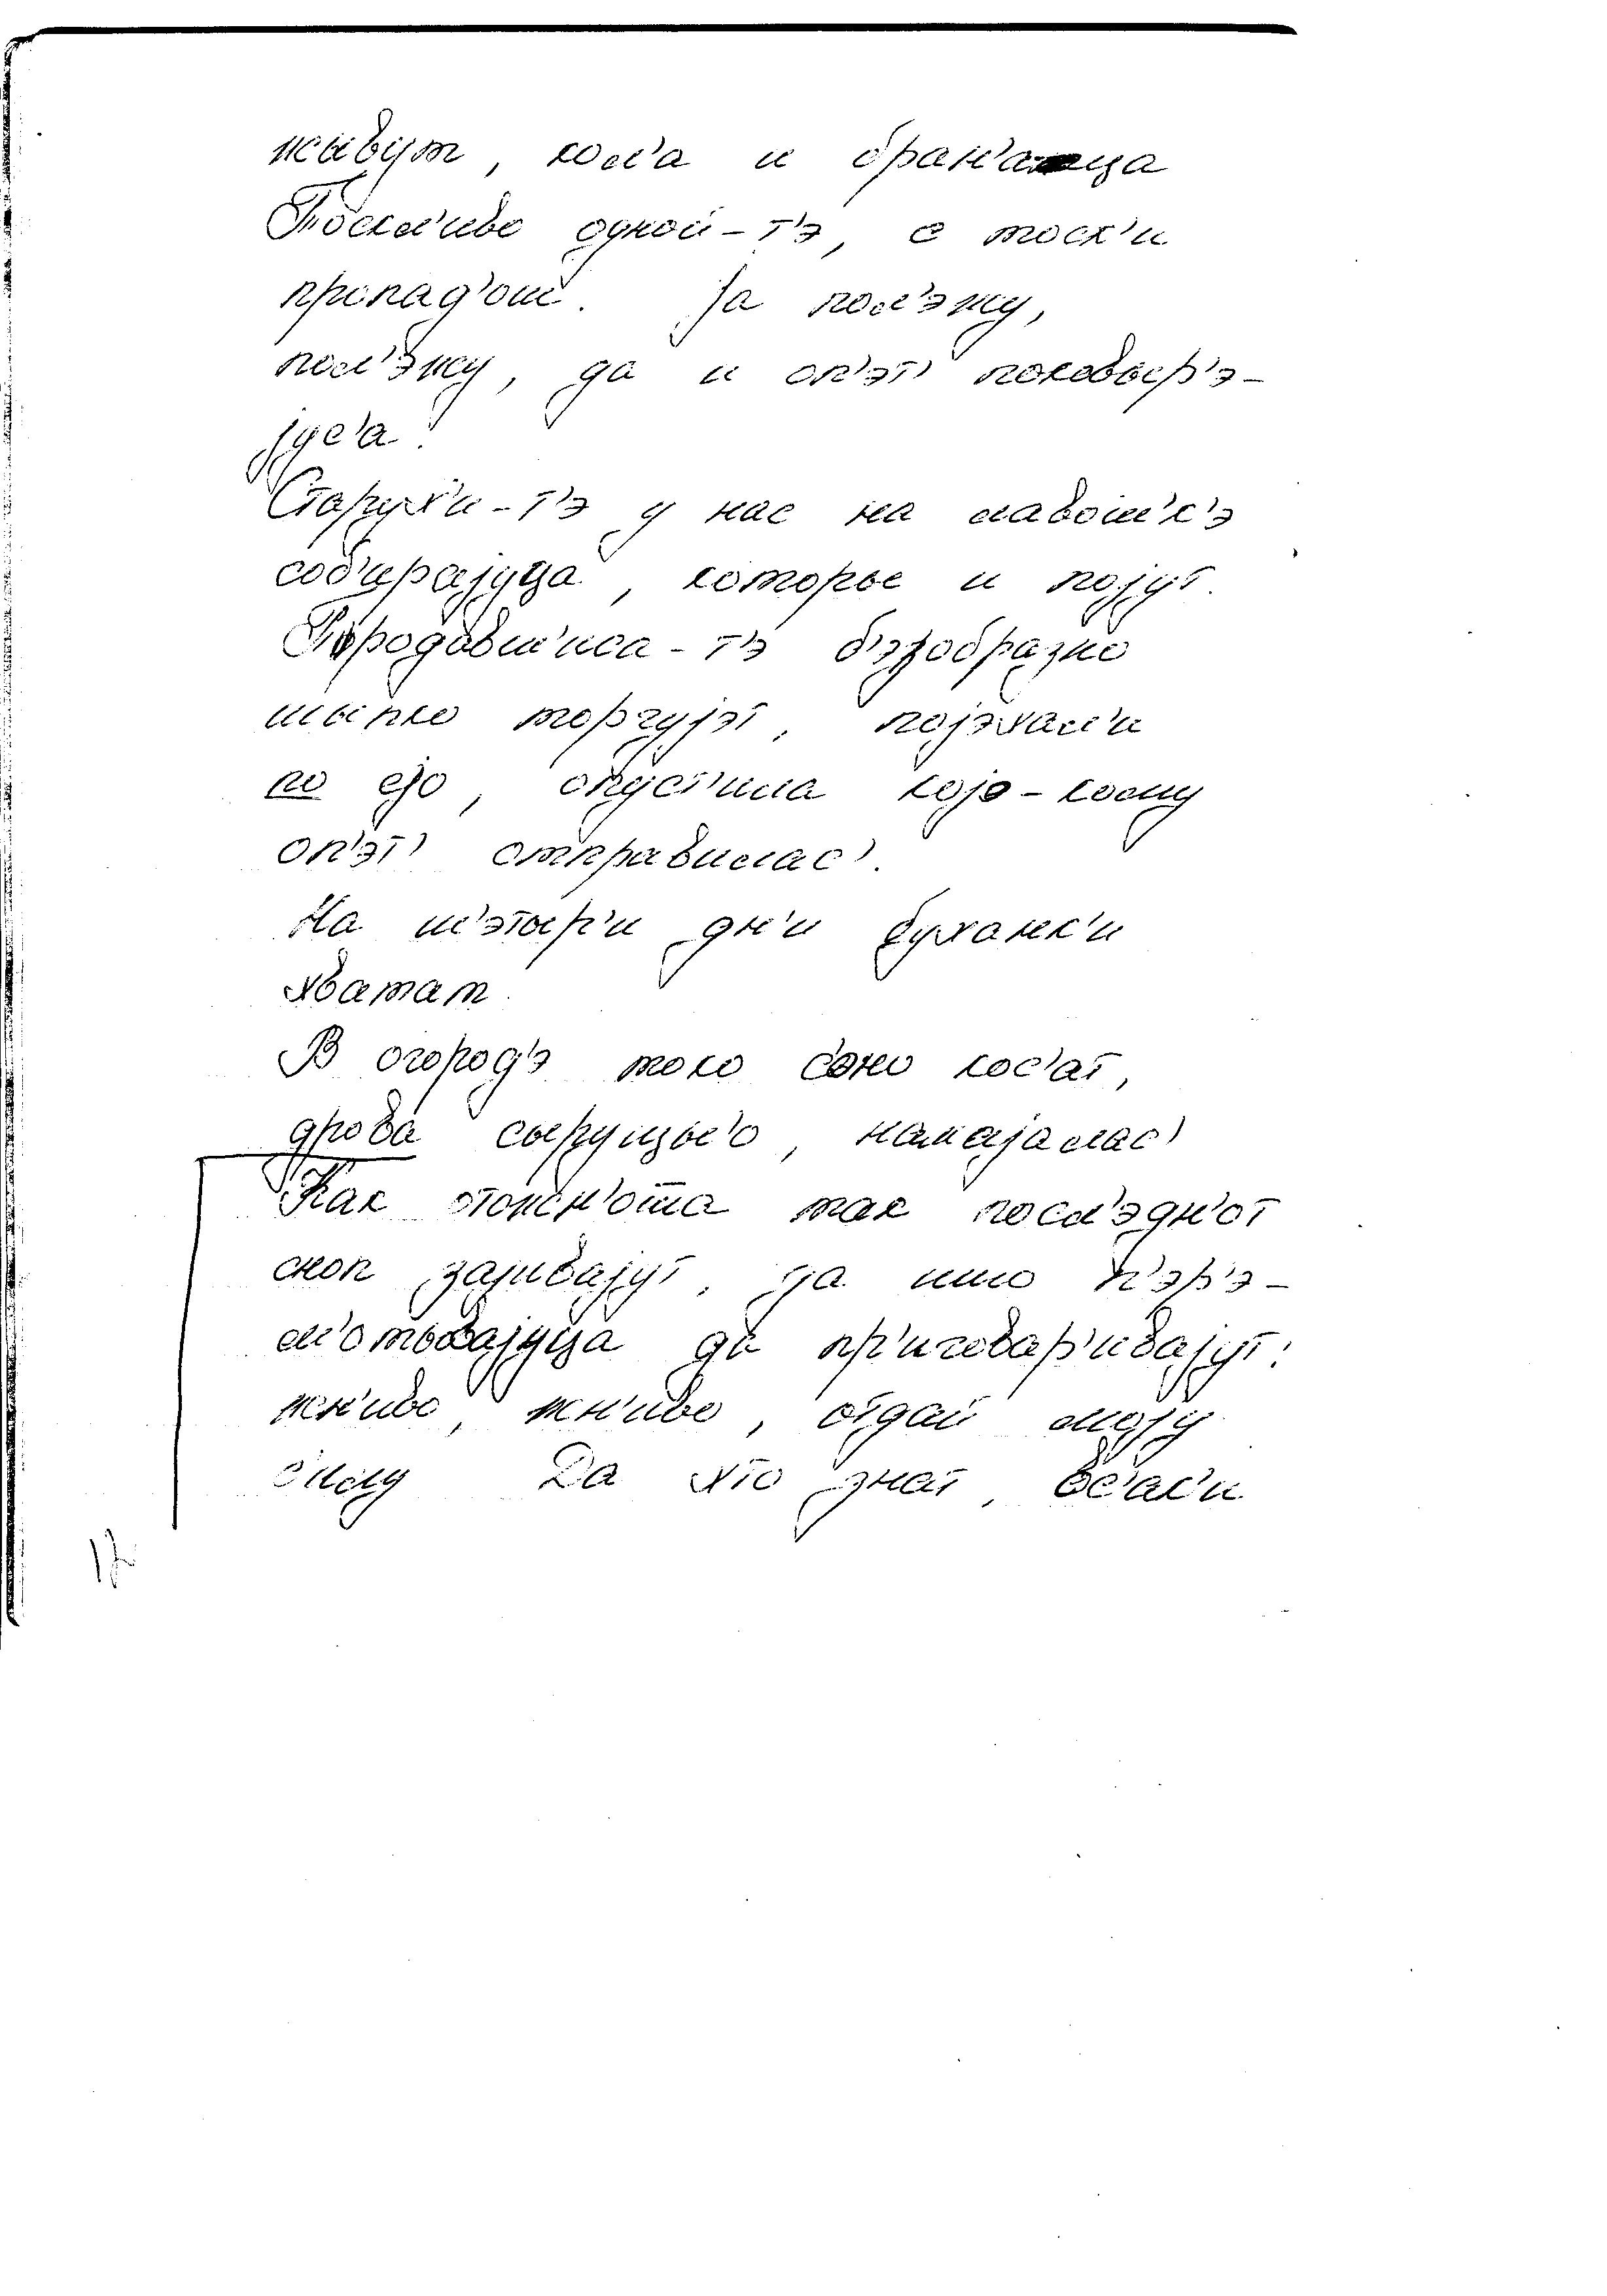 живут, кол'а и бран'аца
Тоскл'иво одной-т'э, с тоск'и
пропад'ош. Ja пол'эжу,
пол'эжу, да и оп'эт' поковыр'э-
jус'а.
Старух'и-т'э у нас на лавочк'э
соб'ираjуца, которы и поjут.
Продавш'ица-т'э б'эзобразно
шыпко торгуjэт, поjэхал'и
по ejo, опуст'ила коjо-кому
оп'эт' отправилас'.
На ч'отыр'и дн'и буханк'и
хватат.
В огород'э токо сено кос'ат,
дрова сыгрузыв'о, намаjалас'
Как отожн'отца так посл'эдн'от
сноп зажываjут, да ишо п'эр'э-
м'отываjуца да пр'иговар'иваjут:
жн'иво, жн'иво, отдай моjу
с'илу Да хто знат, вс'ак'и
17